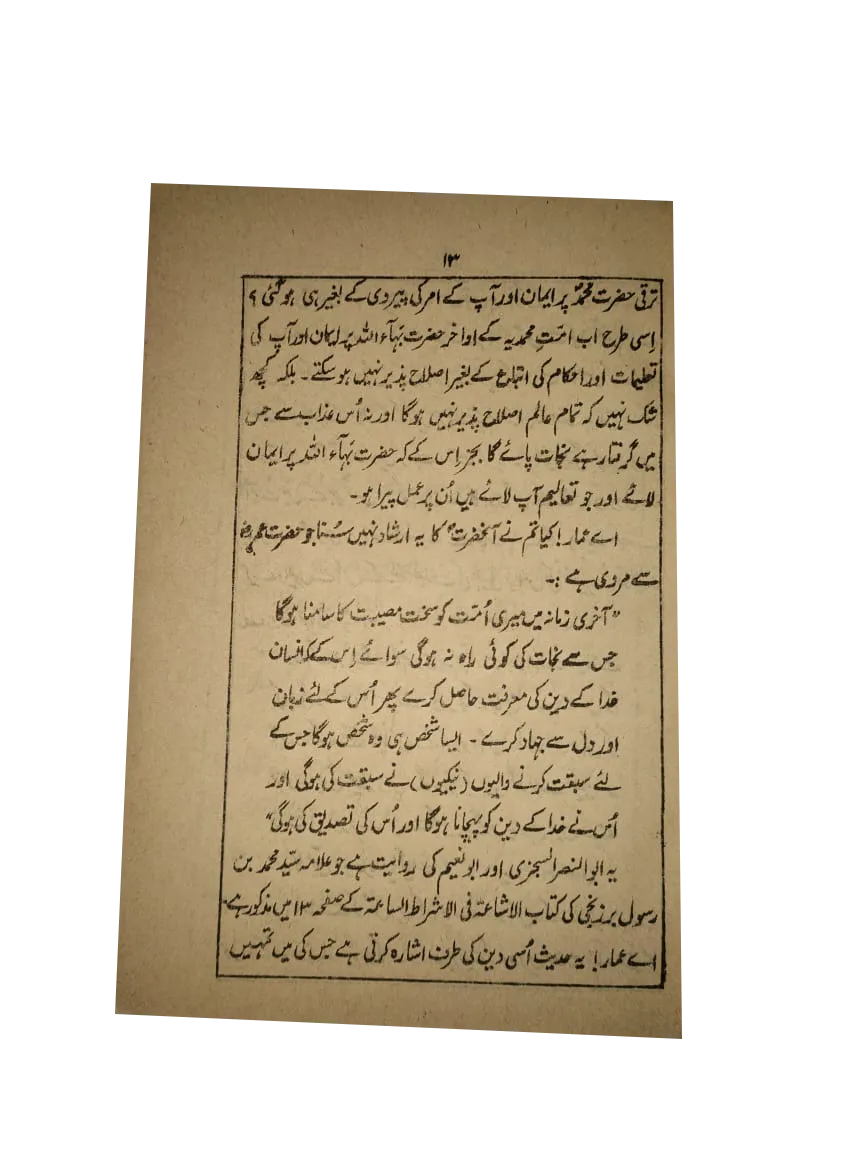 ۱۳
ترقی حضرت محمدؐ پر ایمان اور آپ کے امر کی پیروی کے بغیر ہی ہو گئی ؟
اِسی طرح اب امّتِ محمدیہ کے اواخر حضرت بہآء اللہ پر ایمان اور آپ کی
تعلیمات اور احکام کی اتباع کے بغیر اصلاح پذیر نہیں ہو سکتے ۔ بلکہ کچھ
شک نہیں کہ تمام عالم اصلاح پذیر نہیں ہوگا اور نہ اُس عذاب سے جس
میں گرفتار ہے نجات پائے گا بجز اِس کے کہ حضرت بہآء اللہ پر ایمان
لائے اور جو تعالیم آپ لائے ہیں اُن پر عمل پیرا ہو ۔
اے عمار! کیا تم نے آنحضرتؐ کا یہ ارشاد نہیں سُنا جو حضرت عمرؓ
سے مروی ہے :۔
"آخری زمانہ میں میری اُمّت کو سخت مصیبت کا سامنا ہوگا
جس سے نجات کی کوئی راہ نہ ہوگی سوائے اِس کے کہ انسان
خدا کے دین کی معرفت حاصل کرے پھر اُس کے لئے زبان
اور دل سے جہاد کرے ۔ ایسا شخص ہی وہ شخص ہوگا جس کے
لئے سبقت کرنے والیوں (نیکیوں) نے سبقت کی ہوگی اور
اُس نے خدا کے دین کو پہچانا ہوگا اور اُس کی تصدیق کی ہوگی"
یہ ابوالنصر السجزی اور ابونعیم کی روایت ہے جو علامہ سیّد محمد بن
رسول برزنجی کی کتاب الاشاعۃ فی الاشراط الساعۃ کے صفحہ ۱۳ میں مذکور ہے۔
اے عمار! یہ حدیث اُسی دین کی طرف اشارہ کرتی ہے جس کی میں تمہیں